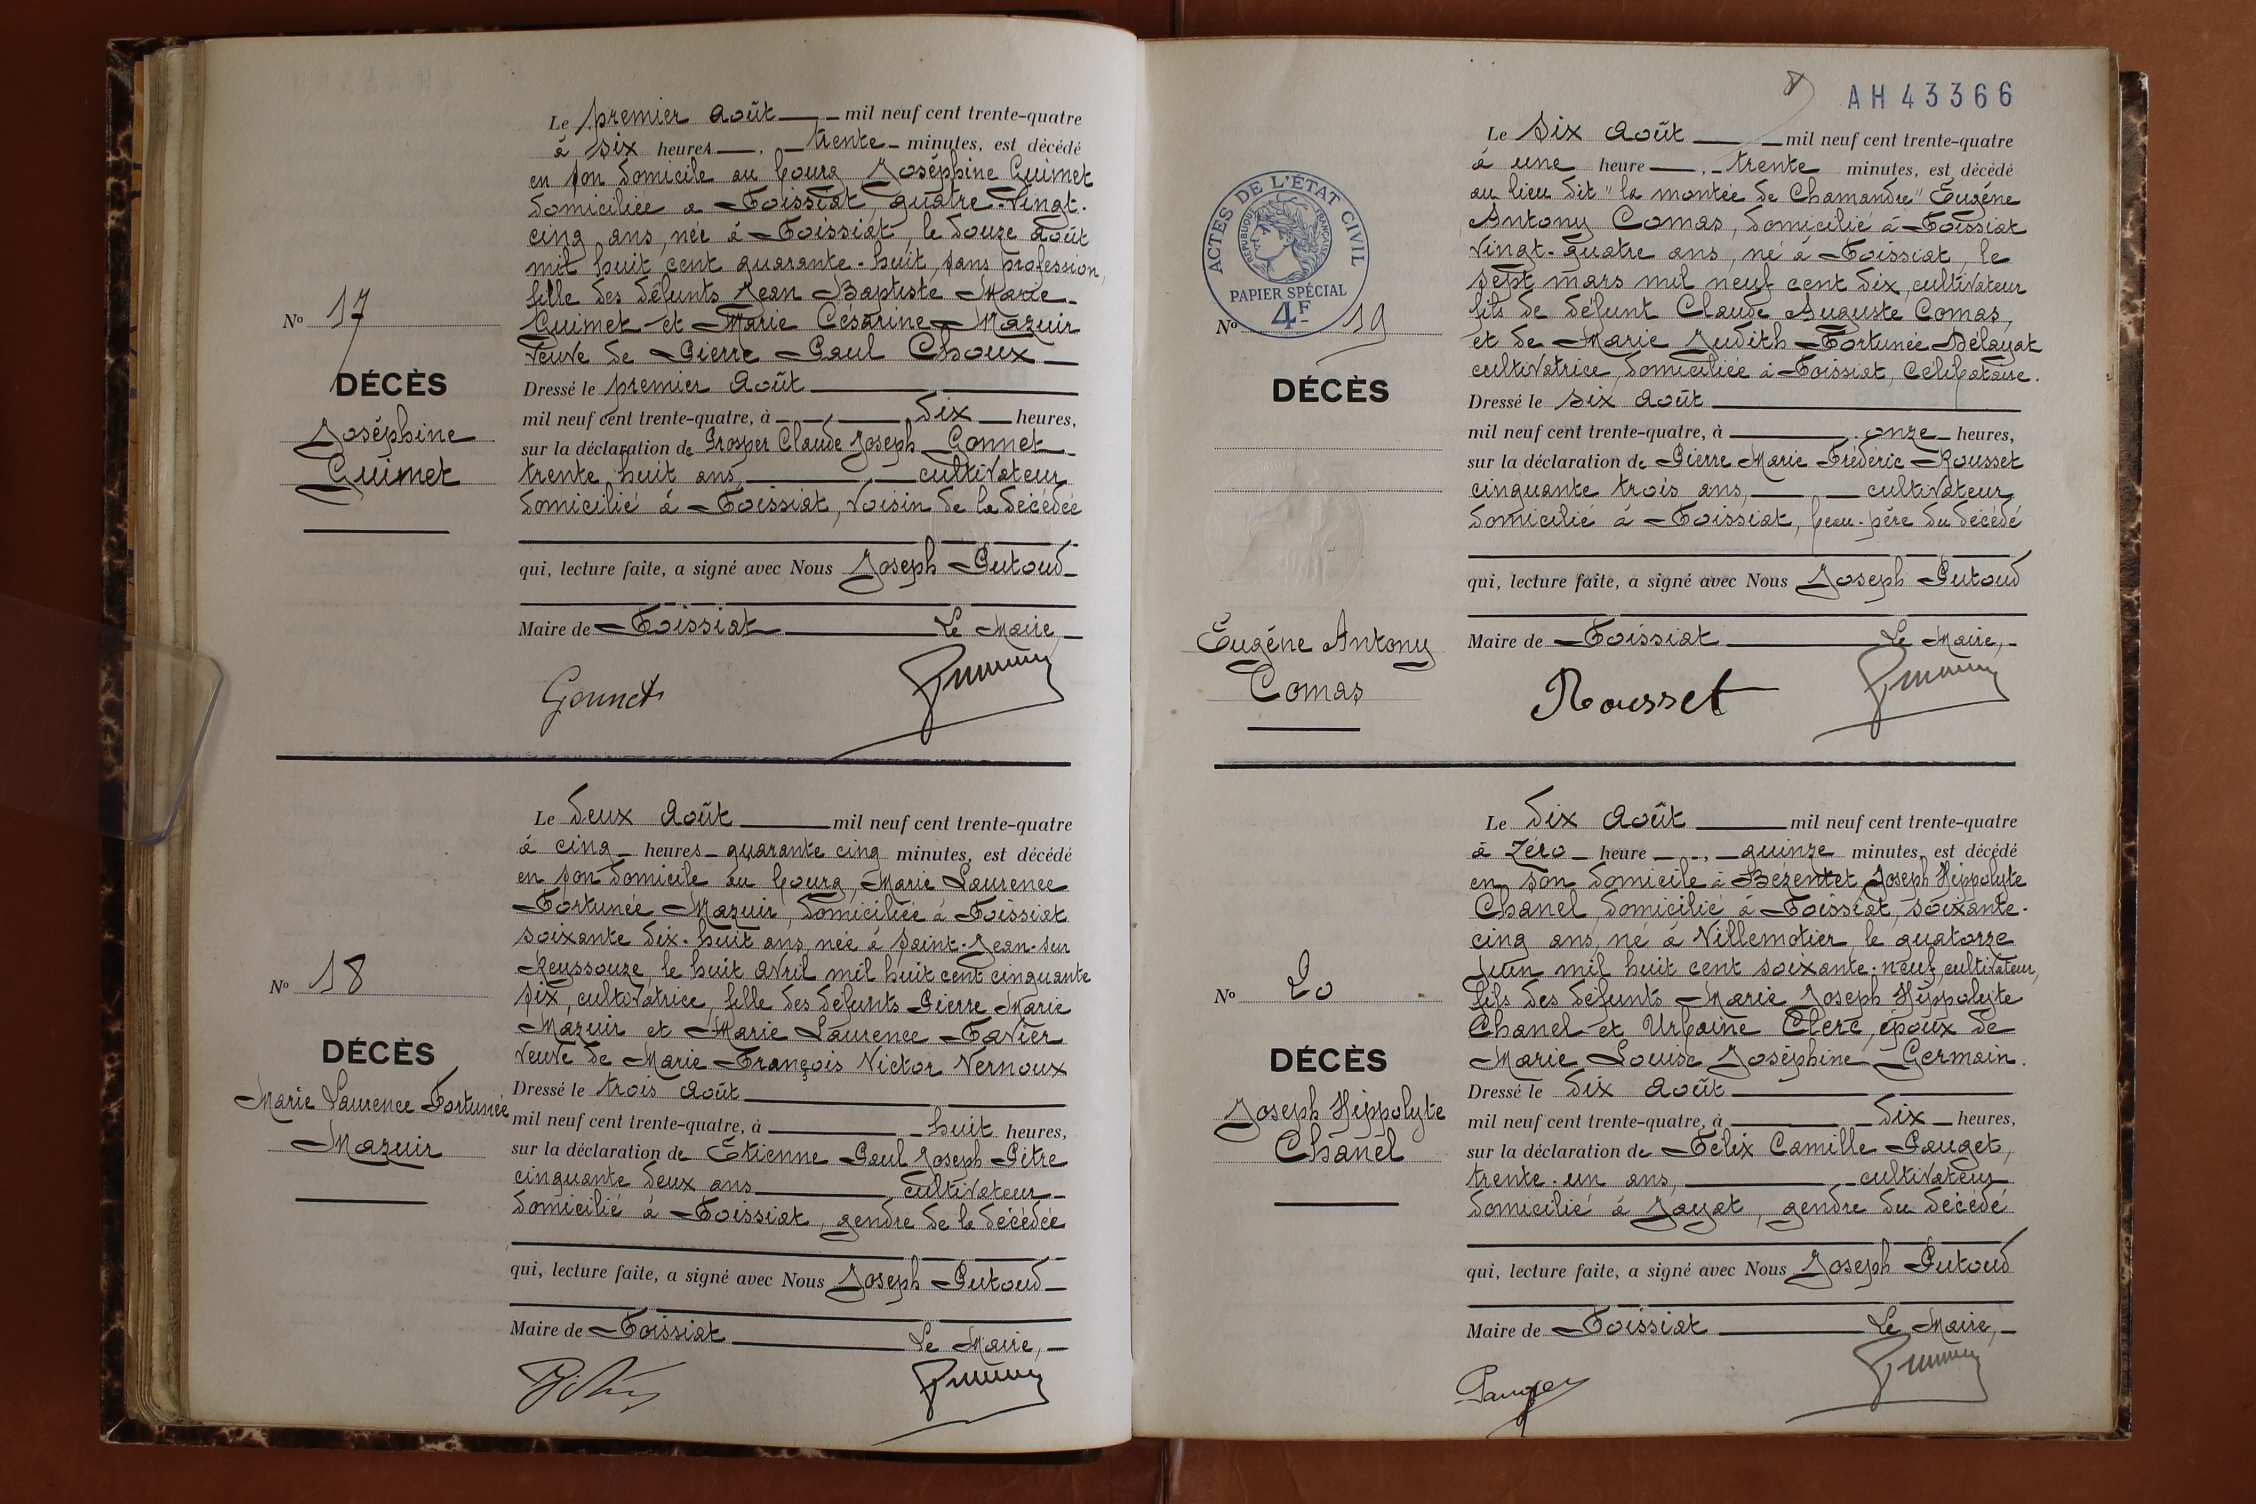 Le premier Août mil neuf cent trente-quatre
à six heures, trente minutes, est décédé
en son domicile au bourg Joséphine Guimet
domiciliée à Foissiat, quatre-vingt-
cinq ans, née à Foissiat, le douze août
mil huit cent quarante-huit, sans profession,
fille des défunts Jean Baptiste Marie
Guimet et Marie Césarine Mazuir
veuve de Pierre Paul Choux
Nº 17
DÉCÈS
Joséphine
Guimet
Dressé le premier Août
mil neuf cent trente-quatre, à dix heures,
sur la déclaration de Prosper Claude Joseph Gonnet
trente huit ans, cultivateur
domicilié à Foissiat, voisin de la décédée
qui, lecture faite, a signé avec Nous Joseph Putoud
Maire de Foissiat Le Maire,
Gonnet
Le deux Août mil neuf cent trente-quatre
à cinq heures quarante cinq minutes, est décédé
en son domicile au bourg, Marie Laurence
Fortunée Mazuir, domiciliée à Foissiat
soixante dix-huit ans, née à Saint-Jean-sur
Reyssouze, le huit avril mil huit cent cinquante
six, cultivatrice, fille des défunts Pierre Marie
Mazuir et Marie Laurence Favier
veuve de Marie François Victor Vernoux
Nº 18
DÉCÈS
Marie Laurence Fortunée
Mazuir
Dressé le trois Août
mil neuf cent trente-quatre, à huit heures,
sur la déclaration de Etienne Paul Joseph Pitre
cinquante deux ans cultivateur
domicilié à Foissiat, gendre de la décédée
qui, lecture faite, a signé avec Nous Joseph Putoud
Maire de Foissiat Le Maire,
8
AH 43366
Le six Août mil neuf cent trente-quatre
à une heure, trente minutes, est décédé
au lieu dit "la montée de Chamandre" Eugéne
Antony Comas, domicilié à Foissiat
vingt-quatre ans, né à Foissiat, le
sept mars mil neuf cent dix, cultivateur
fils de défunt Claude Auguste Comas,
et de Marie Judith Fortunée Délayat
cultivatrice, domiciliée à Foissiat, célibataire.
ACTES DE L'ÉTAT CIVIL
RÉPUBLIQUE FRANÇAISE
PAPIER SPÉCIAL
4F
Nº 19
DÉCÈS
Eugéne Antony
Comas
Dressé le six Août
mil neuf cent trente-quatre, à onze heures,
sur la déclaration de Pierre Marie Frédéric Rousset
cinquante trois ans, cultivateur
domicilié à Foissiat, beau-père du décédé
qui, lecture faite, a signé avec Nous Joseph Putoud
Maire de Foissiat Le Maire,
Rousset
Le dix Août mil neuf cent trente-quatre
à zéro heure, quinze minutes, est décédé
en son domicile à Bezentet Joseph Hippolyte
Chanel, domicilié à Foissiat, soixante-
cinq ans, né à Villemotier, le quatorze
juin mil huit cent soixante-neuf, cultivateur,
fils des défunts Marie Joseph Hippolyte
Chanel et Urbaine Clerc, époux de
Marie Louise Joséphine Germain.
Nº 20
DÉCÈS
Joseph Hippolyte
Chanel
Dressé le dix Août
mil neuf cent trente-quatre, à dix heures,
sur la déclaration de Félix Camille Pauget,
trente-un ans, cultivateur
domicilié à Jayat, gendre du décédé
qui, lecture faite, a signé avec Nous Joseph Putoud
Maire de Foissiat Le Maire,
Pauget